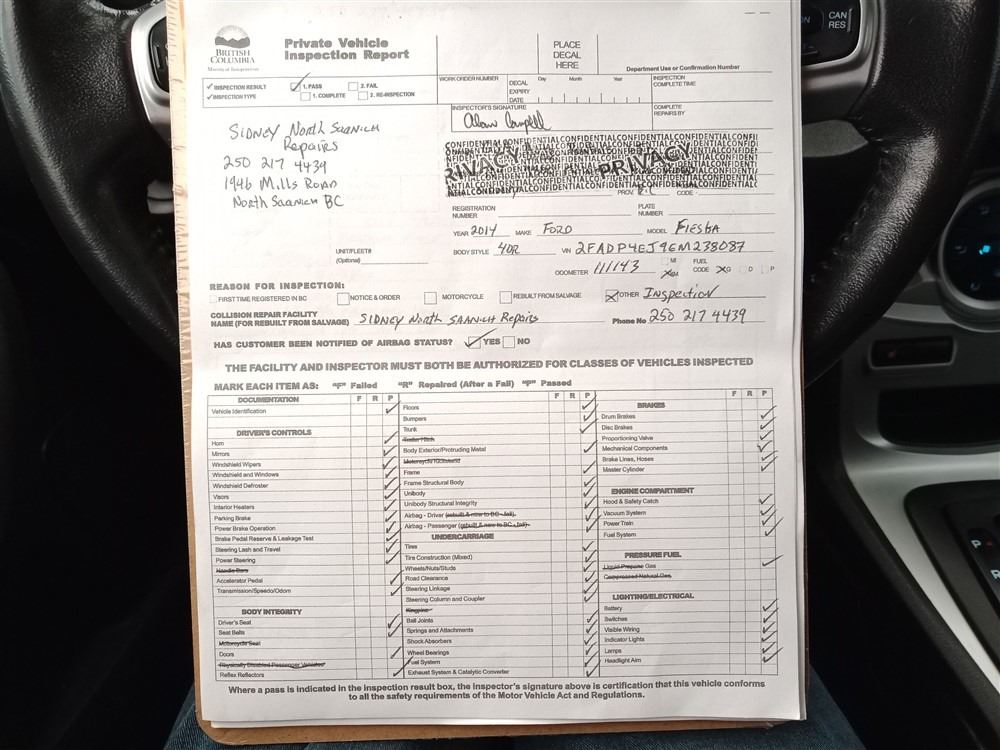 BRITISH
COLUMBIA
Private Vehicle
Inspection Report
PLACE
DECAL
HERE
Department Use or Confirmation Number
CAN
RES
INSPECTION RESULT
1. PASS
2. FAIL
INSPECTION TYPE
1. COMPLETE
2. RE-INSPECTION
WORK ORDER NUMBER
DECAL
EXPIRY
DATE
Day Month Year
INSPECTION
COMPLETE TIME
INSPECTOR'S SIGNATURE
COMPLETE
REPAIRS BY
SIDNEY North SAANICH
Repairs
250 217 4439
1946 Mills Road
North Saanich BC
CONFIDENTIAL
PRIVACY
PROV. B.C.
CODE
REGISTRATION
NUMBER
PLATE
NUMBER
YEAR 2014 MAKE FORD MODEL FIESTA
UNIT/FLEET#
(Optional)
BODY STYLE 4DR VIN 2FADP4EJ9EM238087
ODOMETER 111143
MI
FUEL
CODE G D P
REASON FOR INSPECTION:
FIRST TIME REGISTERED IN BC
NOTICE & ORDER
MOTORCYCLE
REBUILT FROM SALVAGE
OTHER Inspection
COLLISION REPAIR FACILITY
NAME (FOR REBUILT FROM SALVAGE) SIDNEY North SAANICH Repairs Phone No 250 217 4439
HAS CUSTOMER BEEN NOTIFIED OF AIRBAG STATUS? YES NO
THE FACILITY AND INSPECTOR MUST BOTH BE AUTHORIZED FOR CLASSES OF VEHICLES INSPECTED
MARK EACH ITEM AS: "F" Failed "R" Repaired (After a Fail) "P" Passed
DOCUMENTATION F R P
Vehicle Identification
DRIVER'S CONTROLS
Horn
Mirrors
Windshield Wipers
Windshield and Windows
Windshield Defroster
Visors
Interior Heaters
Parking Brake
Power Brake Operation
Brake Pedal Reserve & Leakage Test
Steering Lash and Travel
Power Steering
Handle Bars
Accelerator Pedal
Transmission/Speedo/Odom
BODY INTEGRITY
Driver's Seat
Seat Belts
Motorcycle Seat
Doors
Physically Disabled Passenger Vehicles
Reflex Reflectors
F R P
Floors
Bumpers
Trunk
Trailer Hitch
Body Exterior/Protruding Metal
Motorcycle Kickstand
Frame
Frame Structural Body
Unibody
Unibody Structural Integrity
Airbag - Driver (rebuilt & new to BC - fail).
Airbag - Passenger (rebuilt & new to BC - fail).
UNDERCARRIAGE
Tires
Tire Construction (Mixed)
Wheels/Nuts/Studs
Road Clearance
Steering Linkage
Steering Column and Coupler
Kingpins
Ball Joints
Springs and Attachments
Shock Absorbers
Wheel Bearings
Fuel System
Exhaust System & Catalytic Converter
BRAKES F R P
Drum Brakes
Disc Brakes
Proportioning Valve
Mechanical Components
Brake Lines, Hoses
Master Cylinder
ENGINE COMPARTMENT
Hood & Safety Catch
Vacuum System
Power Train
Fuel System
PRESSURE FUEL
Liquid Propane Gas
Compressed Natural Gas
LIGHTING/ELECTRICAL
Battery
Switches
Visible Wiring
Indicator Lights
Lamps
Headlight Aim
Where a pass is indicated in the inspection result box, the inspector's signature above is certification that this vehicle conforms
to all the safety requirements of the Motor Vehicle Act and Regulations.
P
R